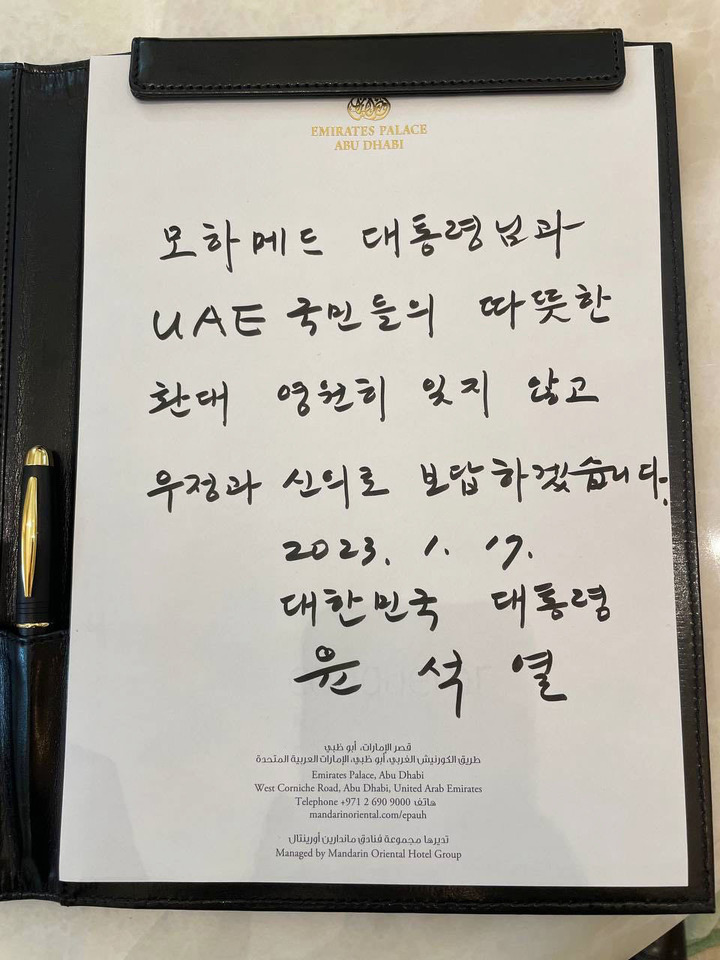 EMIRATES PALACE
ABU DHABI
모하메드 대통령님과
UAE 국민들의 따뜻한
환대 영원히 잊지 않고
우정과 신의로 보답하겠습니다.
2023. 1. 17.
대한민국 대통령
윤석열
قصر الإمارات، أبو ظبي
طريق الكورنيش الغربي، أبو ظبي، الإمارات العربية المتحدة
Emirates Palace, Abu Dhabi
West Corniche Road, Abu Dhabi, United Arab Emirates
Telephone +971 2 690 9000 هاتف
mandarinoriental.com/epauh
تديرها مجموعة فنادق ماندارين أورينتال
Managed by Mandarin Oriental Hotel Group